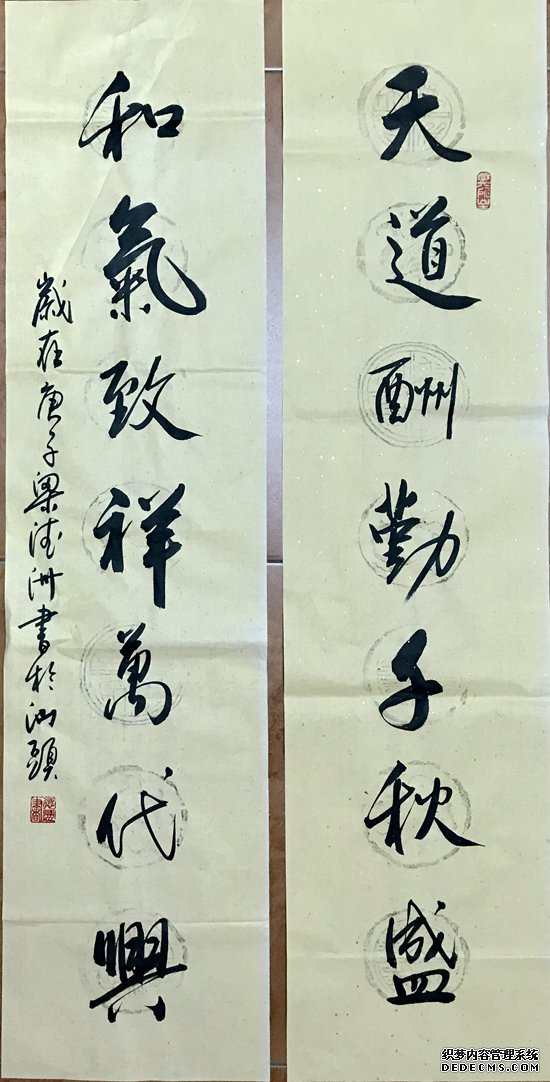 天道酬勤千秋盛
和氣致祥萬代興
歲在庚子梁德洲書於汕頭
织梦内容管理系统
DEDECMS.COM